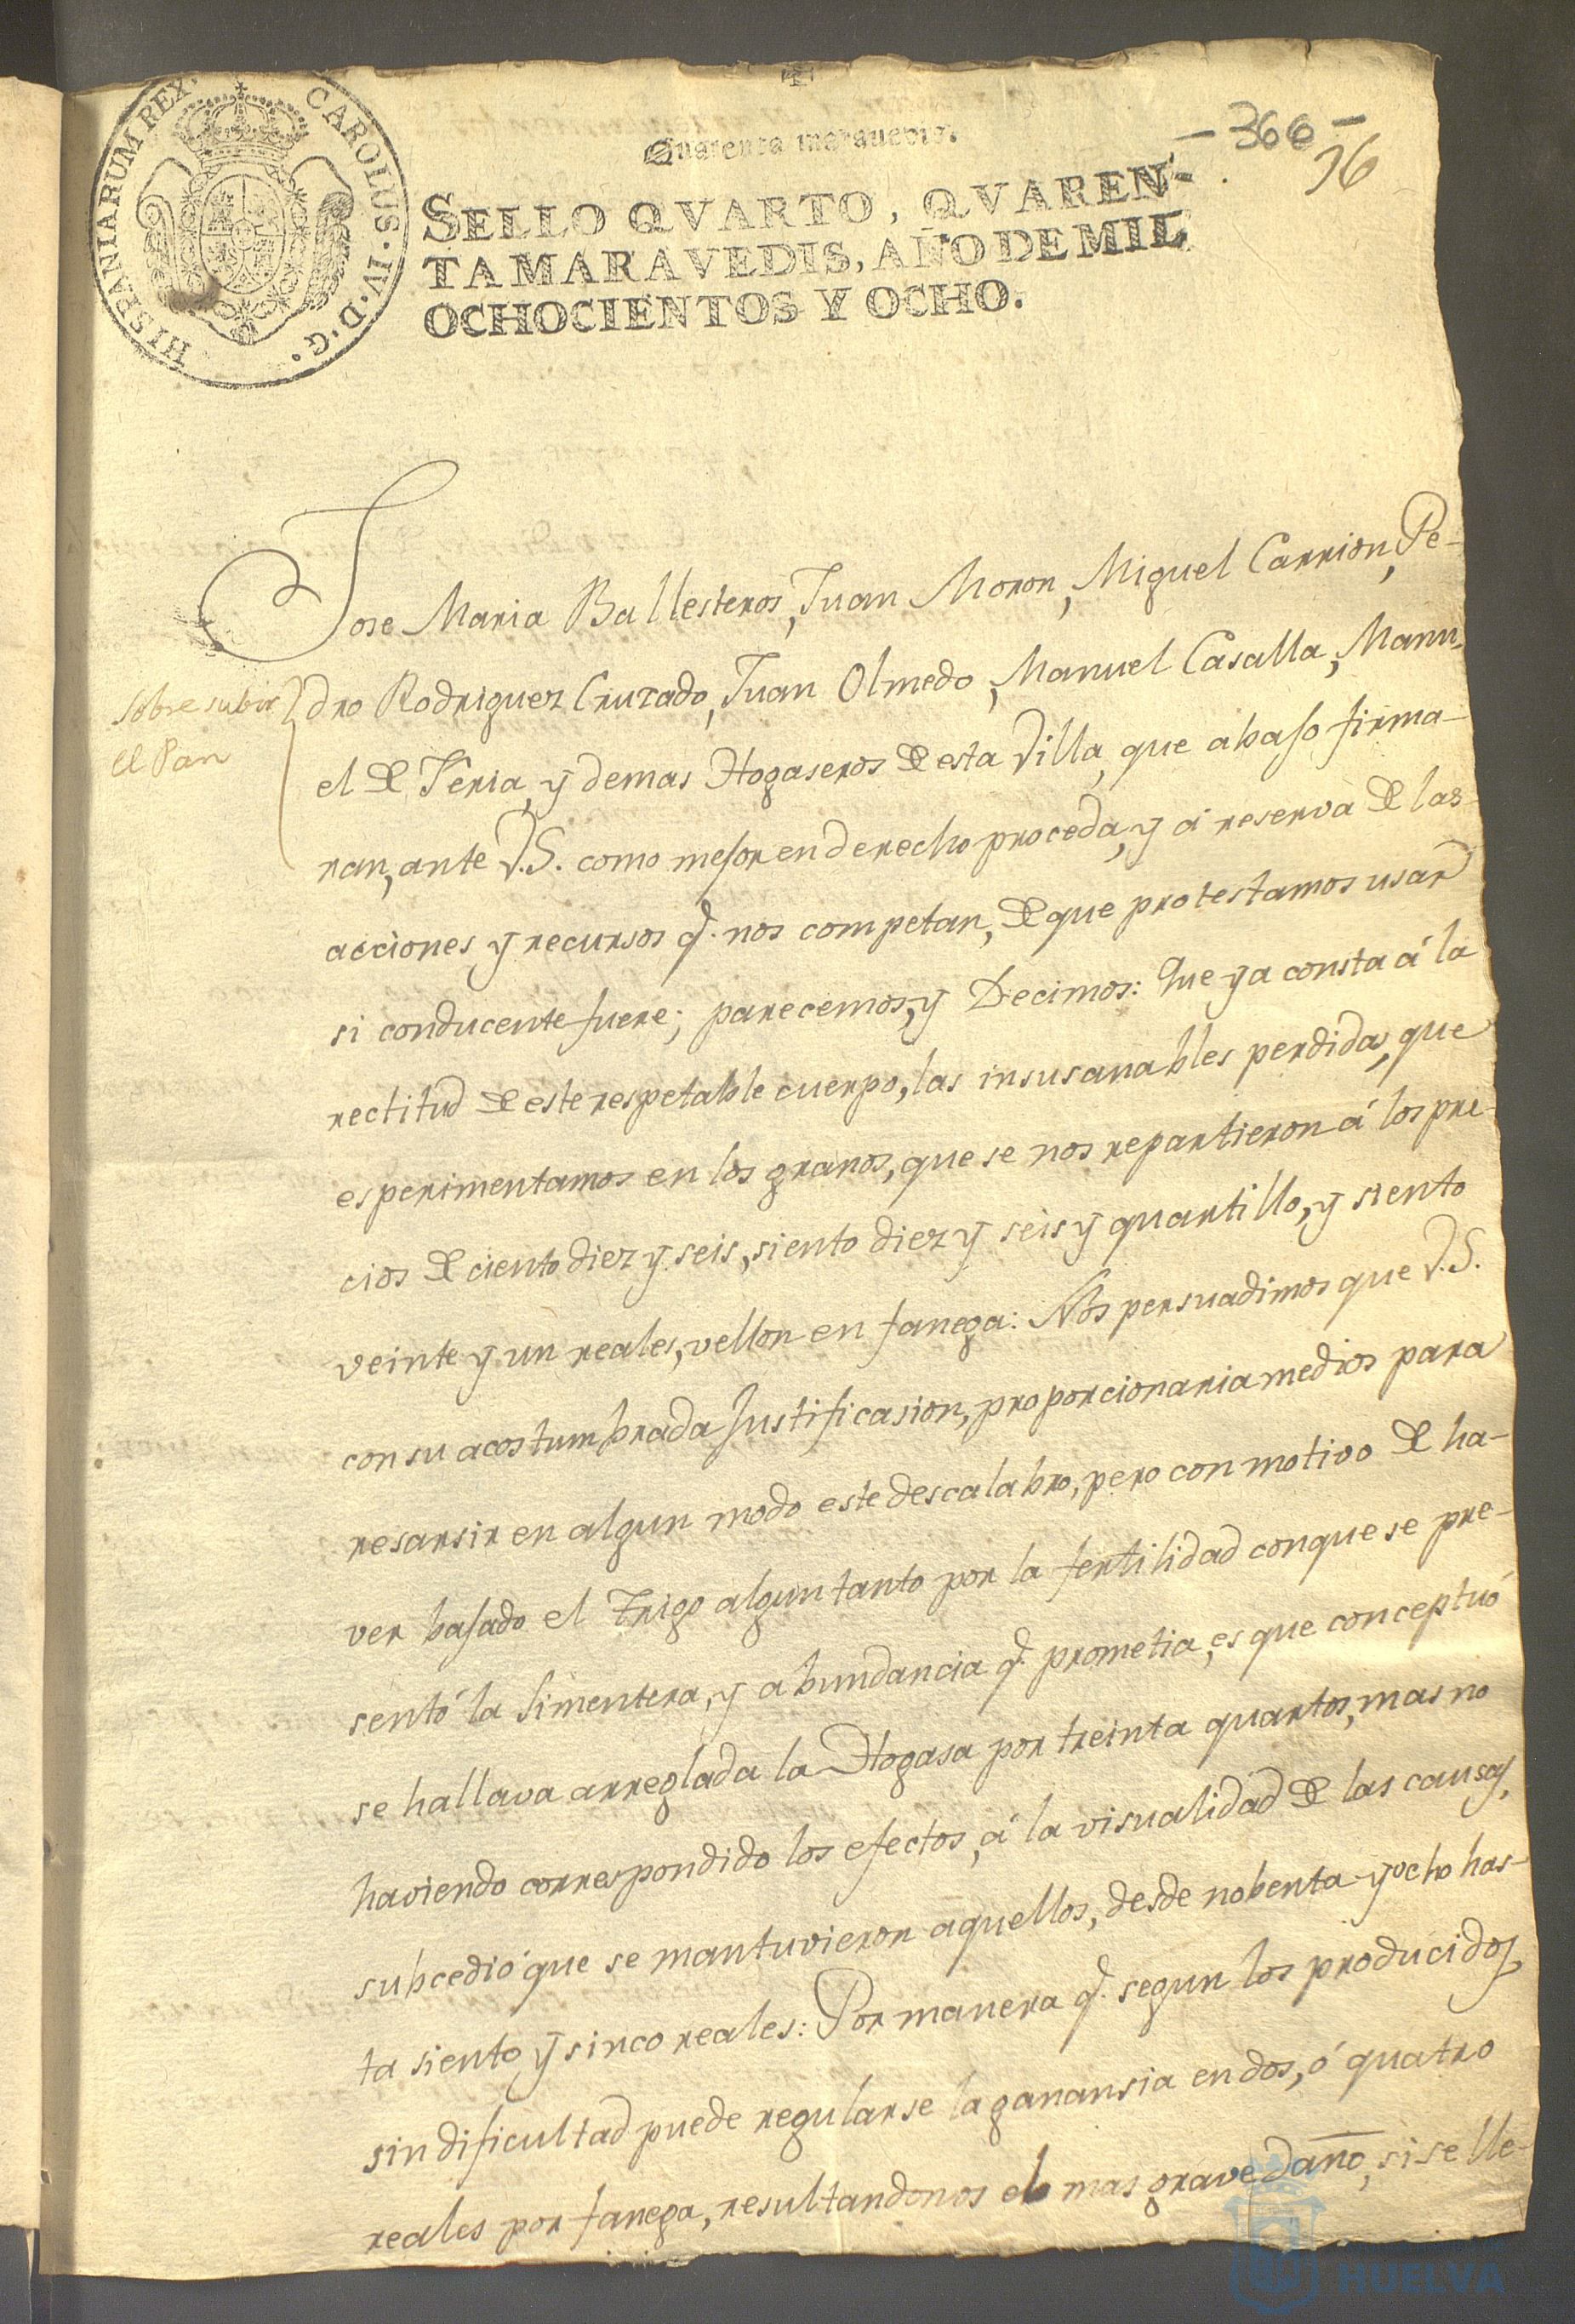 HISPANIARUM REX. CAROLUS. IV. D. G.
Quarenta maravedis.
- 366 -
76
SELLO QVARTO, QVAREN-
TA MARAVEDIS, AÑO DE MIL
OCHOCIENTOS Y OCHO.
Jose Maria Ballesteros, Juan Moron, Miguel Carrion, Pe-
dro Rodriguez Cruzado, Juan Olmedo, Manuel Casalla, Manu-
el de Feria, y demas Hogaseros de esta Villa, que abaso firma-
ran, ante V.S. como mesor en derecho proceda, y á reserva de las
acciones y recursos q. nos competan, de que protestamos usar
si conducente fuere; parecemos, y Decimos: Que ya consta á la
rectitud de este respetable cuerpo, las insusanables perdidas, que
esperimentamos en los granos, que se nos repartieron á los pre-
cios de ciento diez y seis, siento diez y seis y quartillo, y siento
veinte y un reales, vellon en fanega: Nos persuadimos que V.S.
con su acostumbrada Justificasion, proporcionaria medios para
resarsir en algun modo este descalabro, pero con motivo de ha-
ver basado el Trigo algun tanto por la fertilidad conque se pre-
sentó la Simentera, y abundancia q. prometia, es que conceptuó
se hallava arreglada la Hogasa por treinta quartos, mas no
haviendo correspondido los efectos, á la visualidad de las causas,
subcedió que se mantuvieron aquellos, desde nobenta y ocho has-
ta siento y sinco reales: Por manera q. segun los producidos,
sin dificultad puede regularse la ganansia en dos, ó quatro
reales por fanega, resultandonos el mas grave daño, si se lle-
Sobre subir
el Pan
HUELVA